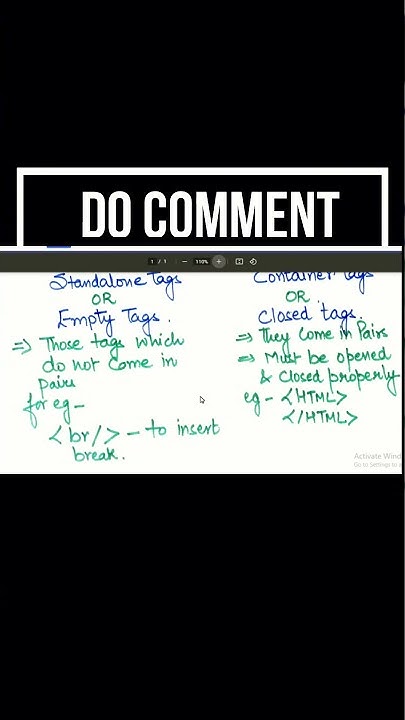 DO COMMENT
1 / 1 — 110% +
Standalone Tags
OR
Empty Tags.
⇒ Those tags which
do not come in
pairs
for eg –
<br/> – to insert
break.
Container tags
OR
Closed tags.
⇒ They come in Pairs
⇒ Must be opened
& closed properly
eg – <HTML>
</HTML>
Activate Wind
Go to Settings to a